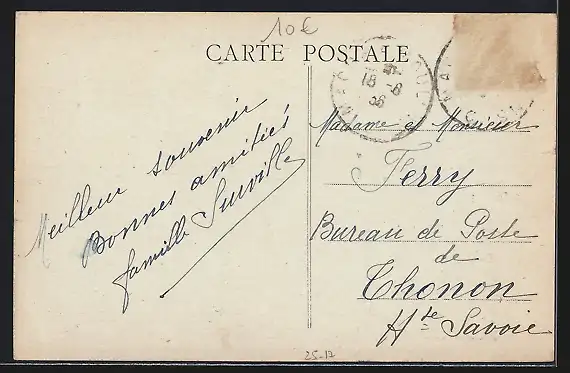 10€
CARTE POSTALE
18-8
36
Meilleur souvenir
Bonnes amitiés
famille Surville
Madame et Monsieur
Ferry
Bureau de Poste
de
Thonon
Hte Savoie
25-17